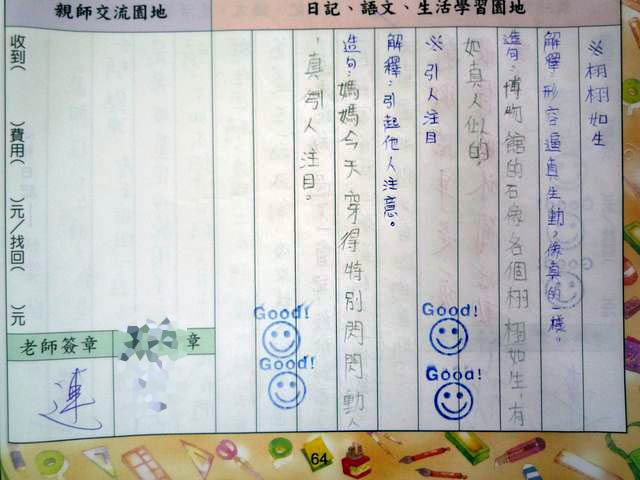 日記、語文、生活學習園地
※栩栩如生
解釋:形容逼真生動,像真的一樣。
造句:博物館的石像各個栩栩如生,有
如真人似的。
※引人注目
解釋:引起他人注意。
造句:媽媽今天穿得特別閃閃動人
,真引人注目。
Good!
Good!
Good!
Good!
親師交流園地
收到( )費用( )元/找回( )元
章
老師簽章
連
64